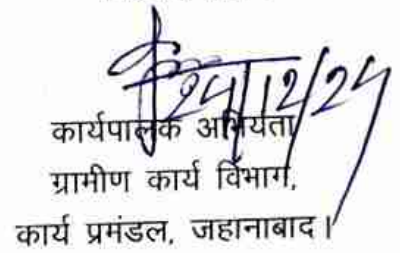 24/12/24
कार्यपालक अभियंता
ग्रामीण कार्य विभाग,
कार्य प्रमंडल, जहानाबाद।